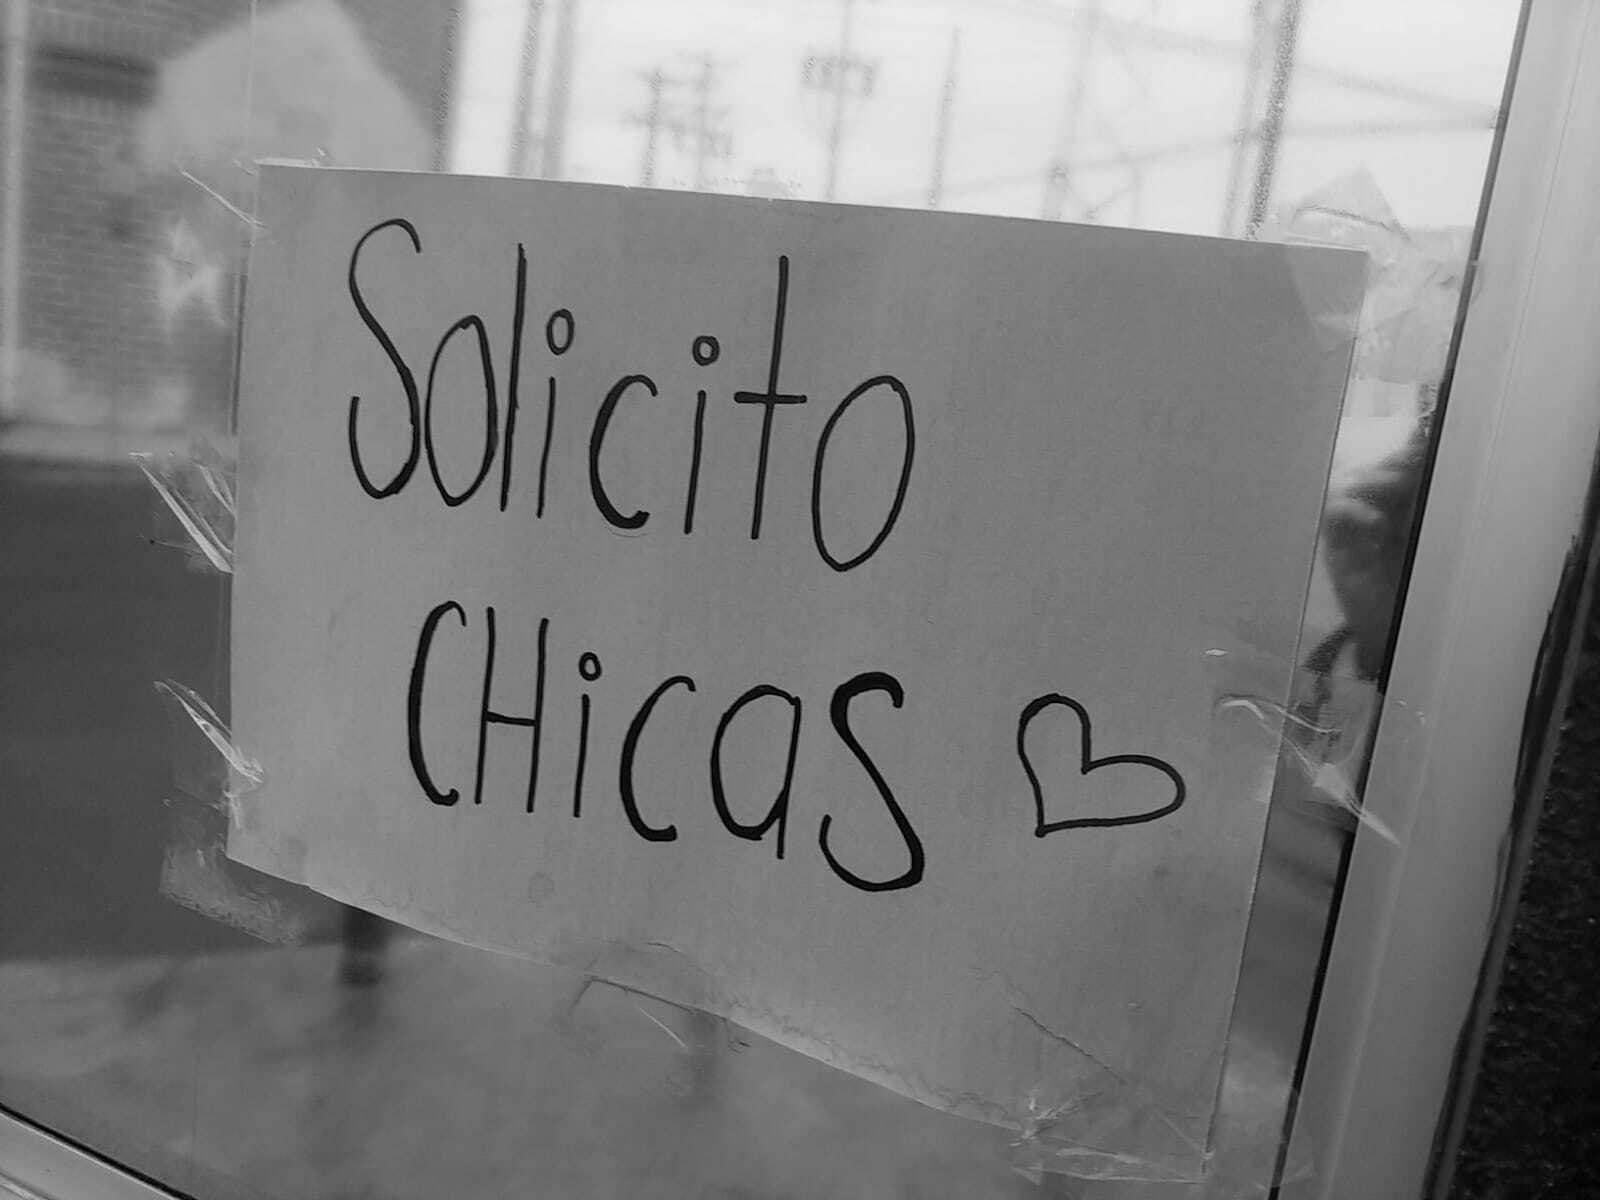 Solicito
CHicas ♡